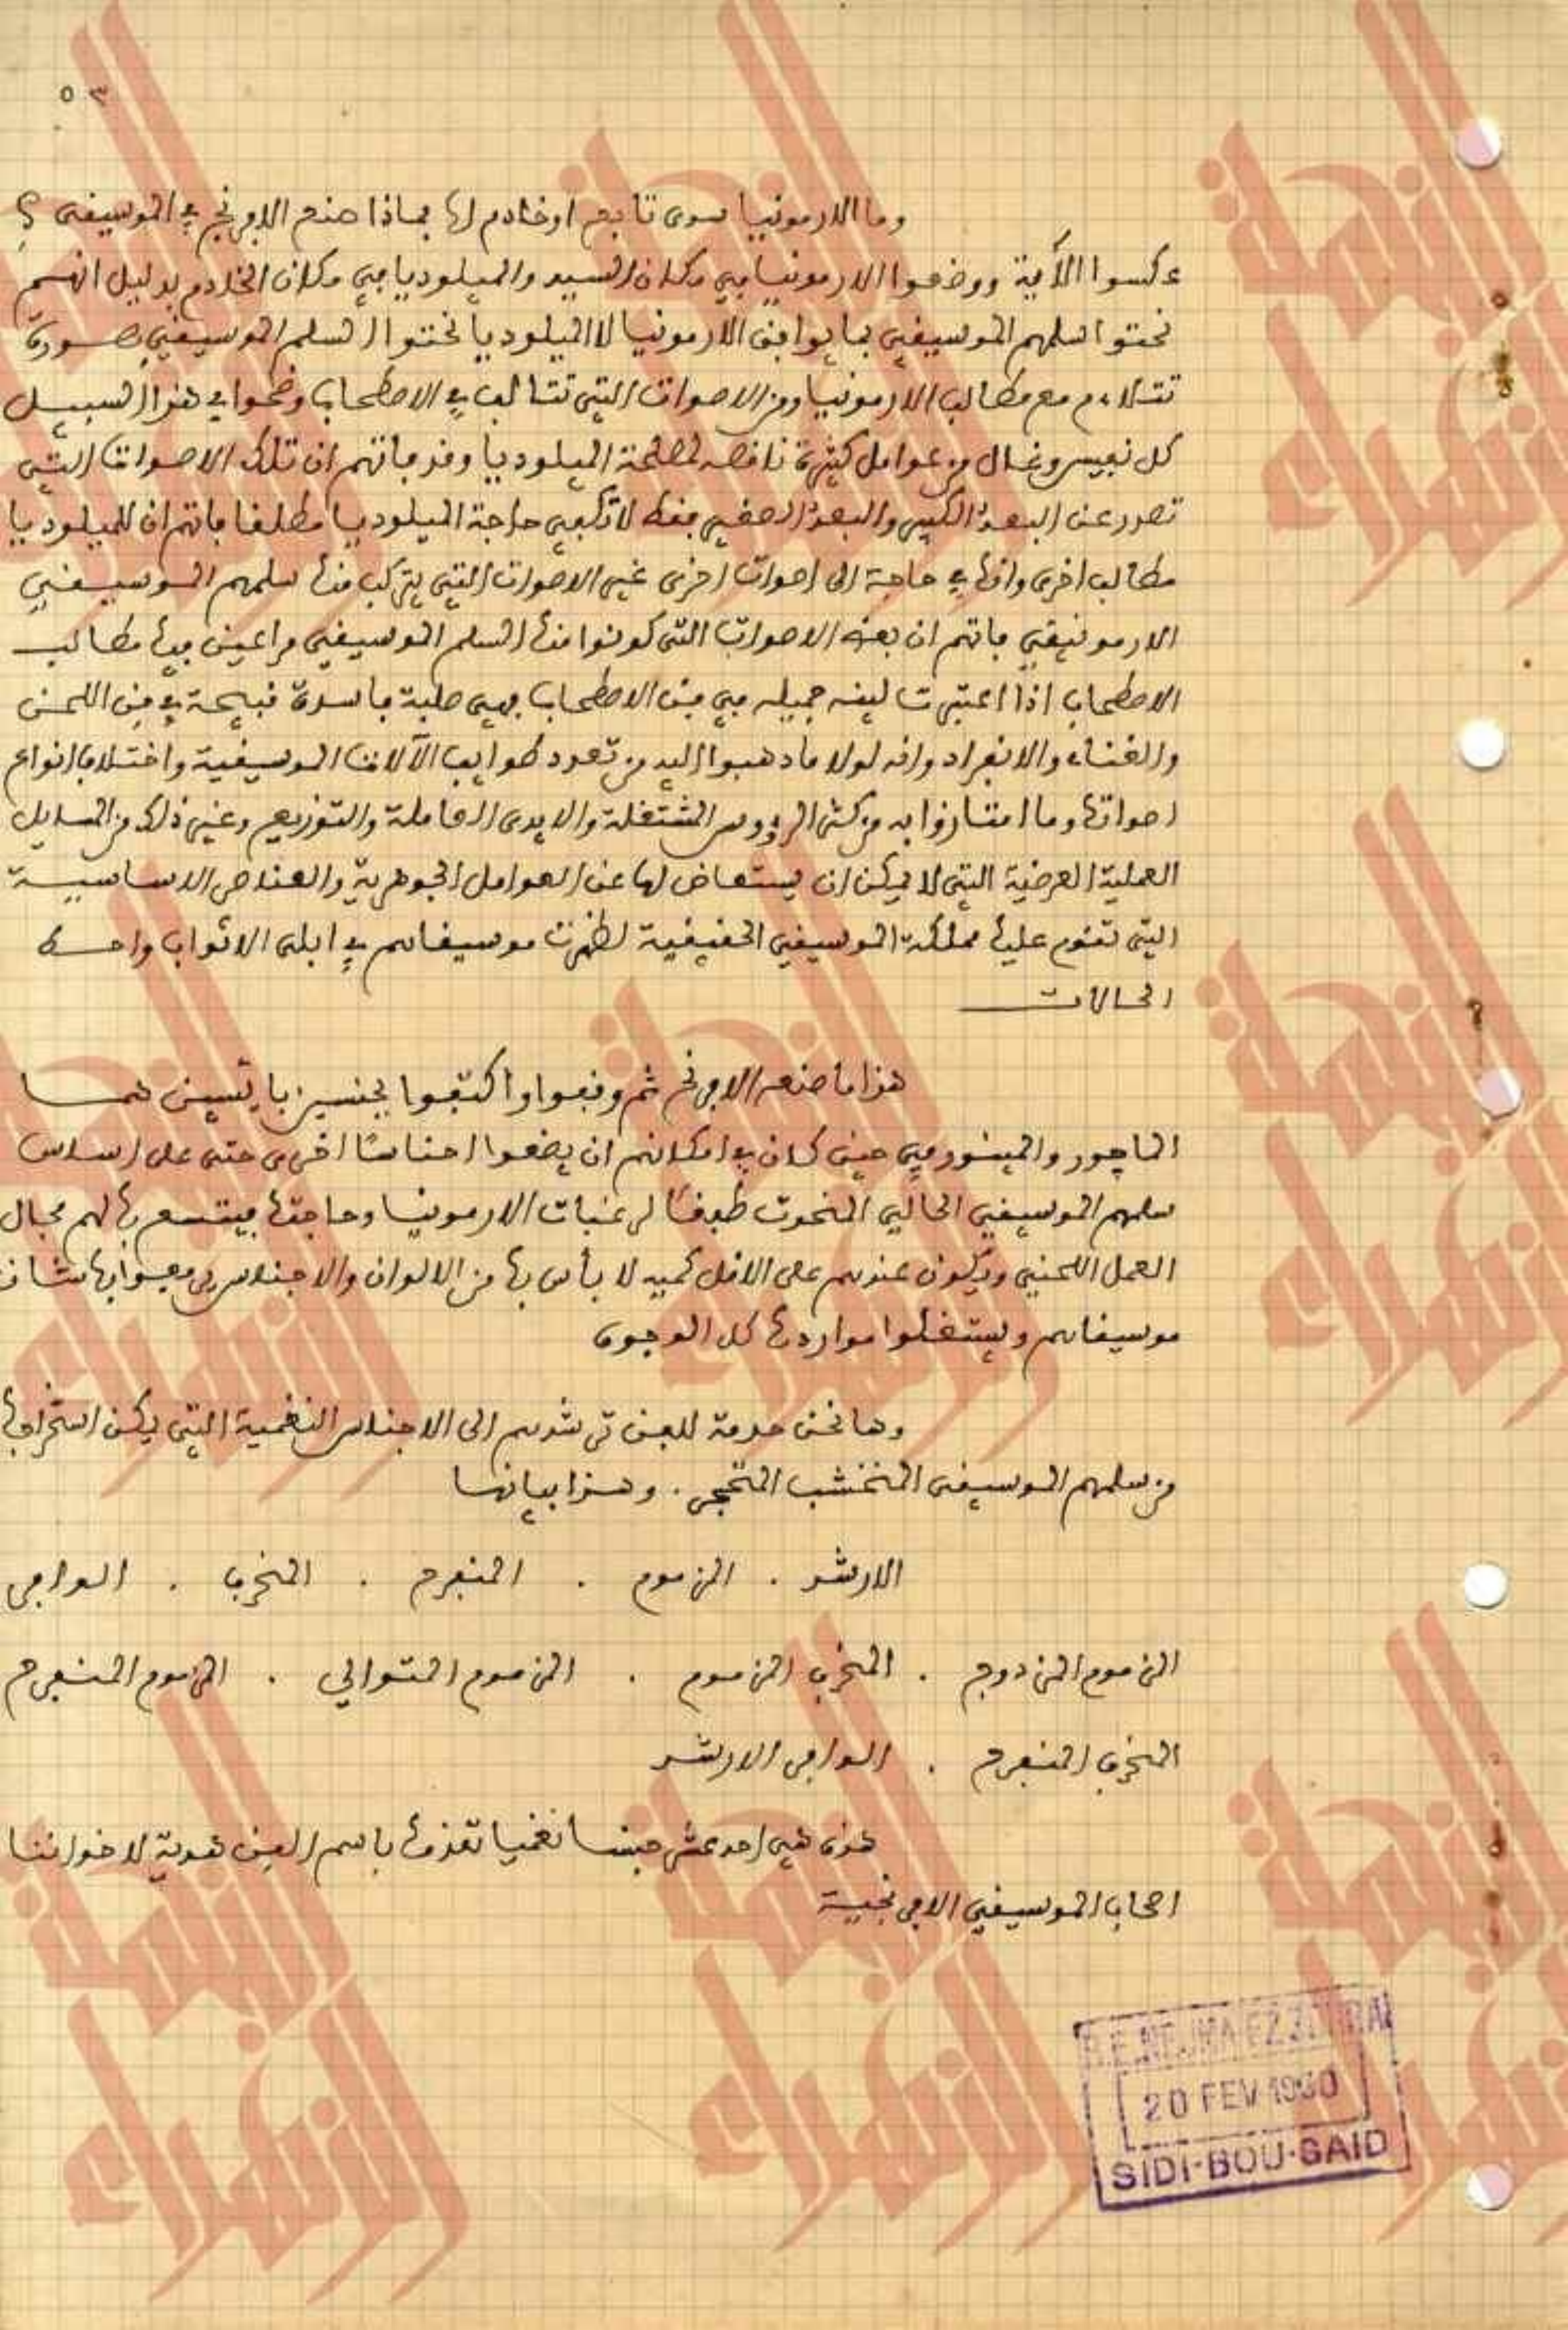 ٥٣
وما الارمونيا سوى تابع او خادم لها فماذا صنع الافرنج في الموسيقى ؟
عكسوا الآية ووضعوا الارمونيا في مكان السيد والميلوديا في مكان الخادم بدليل انهم
نحتوا سلمهم الموسيقي بما يوافق الارمونيا لا الميلوديا نحتوا السلم الموسيقي بصورة
تتلاءم مع مطالب الارمونيا ومن الاصوات التي تتالف في الاصطحاب وضحوا في هذا السبيل
كل نفيس وغال من عوامل كثيرة ناقصه لمصلحة الميلوديا وقد فاتهم ان تلك الاصوات التي
تصدر عن البعد الكبير والبعد الصغير فقط لا تكفي حاجة الميلوديا مطلقا فاتهم ان للميلوديا
مطالب اخرى وانها في حاجة الى اصوات اخرى غير الاصوات التي يتركب منها سلمهم الموسيقي
الارمونيقي فاتهم ان بعض الاصوات التي كونوا منها السلم الموسيقي مراعين فيها مطالب
الاصطحاب اذا اعتبرت اليفه جميله في فن الاصطحاب فهي صلبة فاسدة قبيحة في فن اللحن
والغناء والانفراد وانه لولا ما ذهبوا اليه من تعدد طوايف الآلات الموسيقية واختلاف انواع
اصواتها وما امتازوا به من كثر الرؤوس المشتغلة والايدى العاملة والتوزيع وغير ذلك من المسايل
العملية العرضية التي لا يمكن ان يستعاض لها عن العوامل الجوهرية والعناصر الاساسية
التي تقوم عليها مملكة الموسيقى الحقيقية لظهرت موسيقاهم في ابلى الاثواب واحط
الحالات
هذا ما صنعه الافرنج ثم وقفوا واكتفوا بجنسين باتسين هما
الماجور والمينور في حين كان في امكانهم ان يضعوا اجناسًا اخرى حتى على اساس
سلمهم الموسيقي الحالي المنحوت طبقًا لرغبات الارمونيا وحاجتها فيتسع بها لهم مجال
العمل اللحني ويكون عندهم على الاقل كميه لا بأس بها من الالوان والاجناس يرفعوا بها شان
موسيقاهم ويستغلوا مواردها كل الوجوه
وها نحن خدمة للفن نرشدهم الى الاجناس النغمية التي يمكن استخراجها
من سلمهم الموسيقى المتخشب المتحجر . وهذا بيانها
الارشد . المزموم . المنفرج . المخرب . الوافى
المزموم المزدوج . المخرب المزموم . المزموم المتوالي . المزموم المنفرج
المخرب المنفرج . الوافى الارشد
هذه هي احد عشر جنسا نغميا نقدمها باسم الفن هدية لاخواننا
اصحاب الموسيقي الافرنجية
B.E.NEJMA EZZAHRA
20 FEV 1990
SIDI-BOU-SAID
النجمة الزهراء